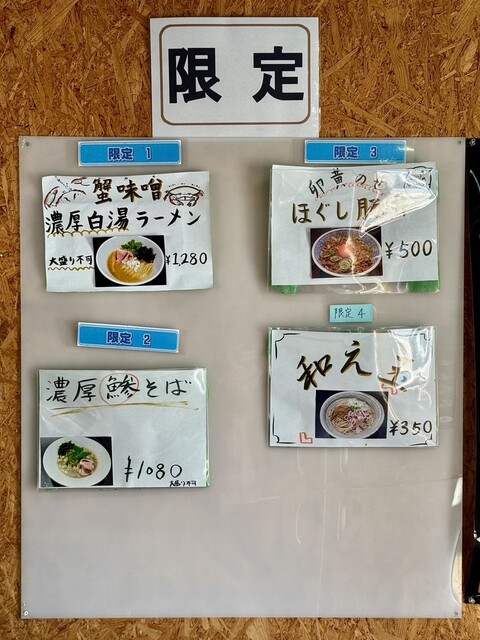 限定
限定 1
蟹味噌
濃厚白湯ラーメン
大盛り不可
¥1,280
限定 2
濃厚鯵そば
¥1080
限定 3
卵黄の
ほぐし
¥500
限定 4
和え
¥350